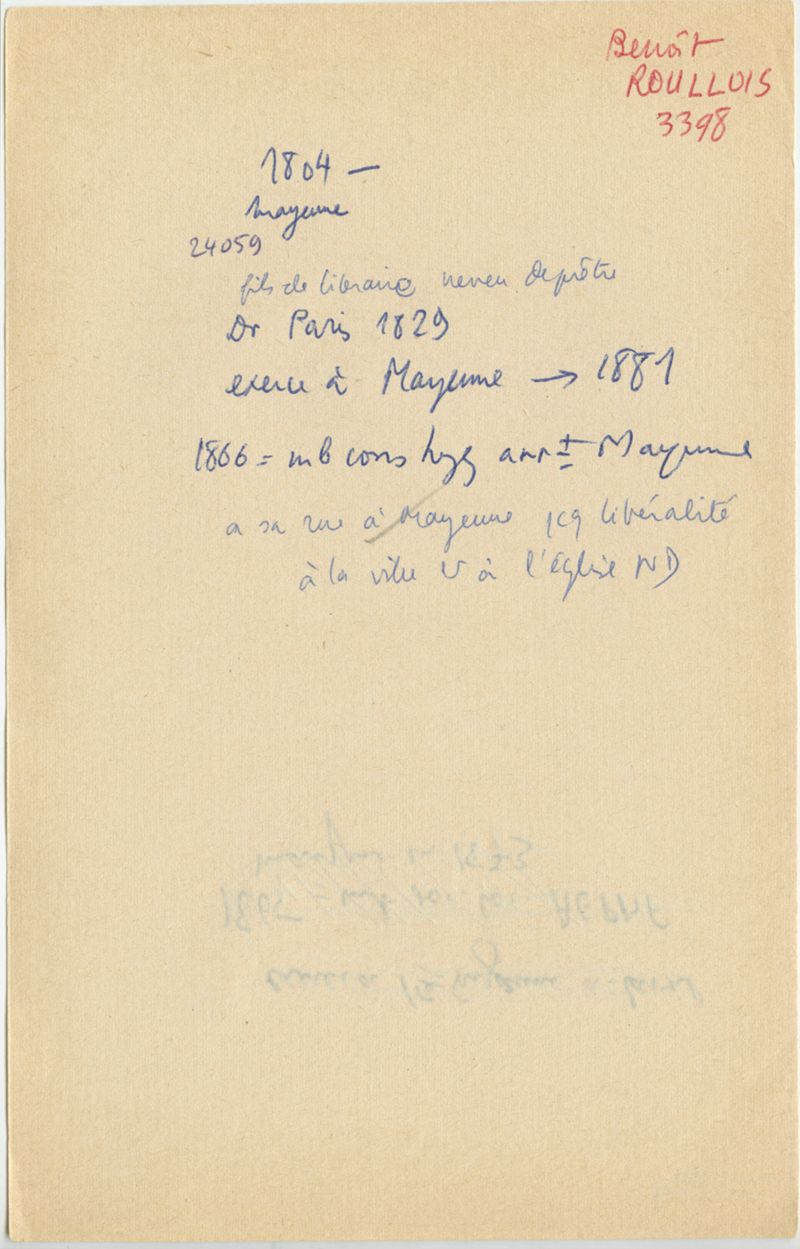 Benoît
ROULLOIS
3398
1804 —
Mayenne
24059
fils de libraire neveu de prêtre
Dr Paris 1829
exerce à Mayenne → 1881
1866 = mb cons hyg arrt Mayenne
a sa rue à Mayenne libéralité
à la ville et à l'église ND